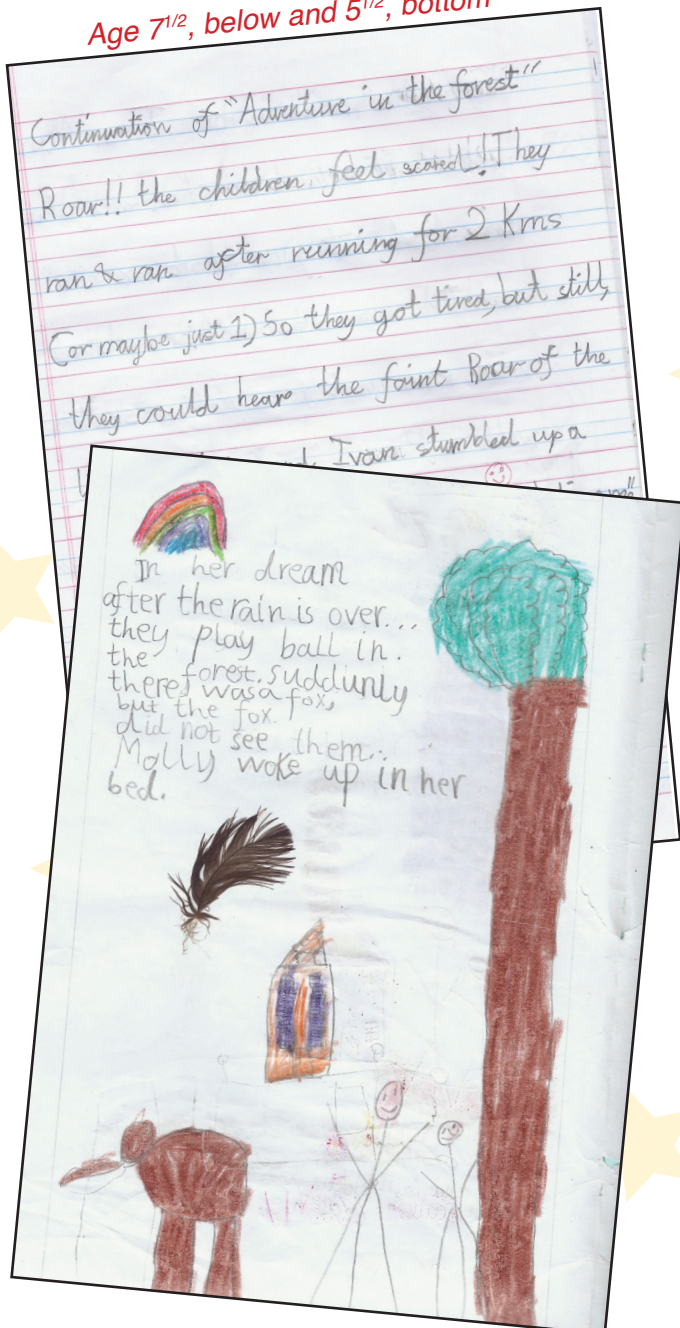 Age 7 1/2, below and 5 1/2, bottom
Continuation of "Adventure in the forest"
Roar!! the children feel scared! They
ran & ran after running for 2 Kms
(or maybe just 1) So they got tired, but still,
they could hear the faint Roar of the
Ivan stumbled up a
In her dream
after the rain is over...
they play ball in.
the forest. Suddunly
theres was a fox,
but the fox.
did not see them..
Molly woke up in her
bed.